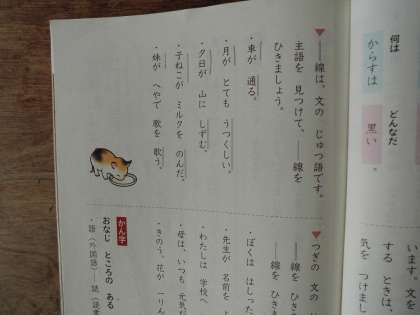 何は
どんなだ
からすは
黒い。
▼━━線は、文の じゅつ語です。
主語を 見つけて、━━線を
ひきましょう。
・車が 通る。
・月が とても うつくしい。
・夕日が 山に しずむ。
・子ねこが ミルクを のんだ。
・妹が へやで 歌を 歌う。
います。文を
する ときは、
気を つけまし
▼つぎの 文の
━━線を ひき
━━線を ひ
・ぼくは はしった
・先生が 名前を よ
・わたしは 学校へ
・母は、いつも 元気
・きのう、花が 一りん
かん字
おなじ ところの ある
・語（外国語）━━話